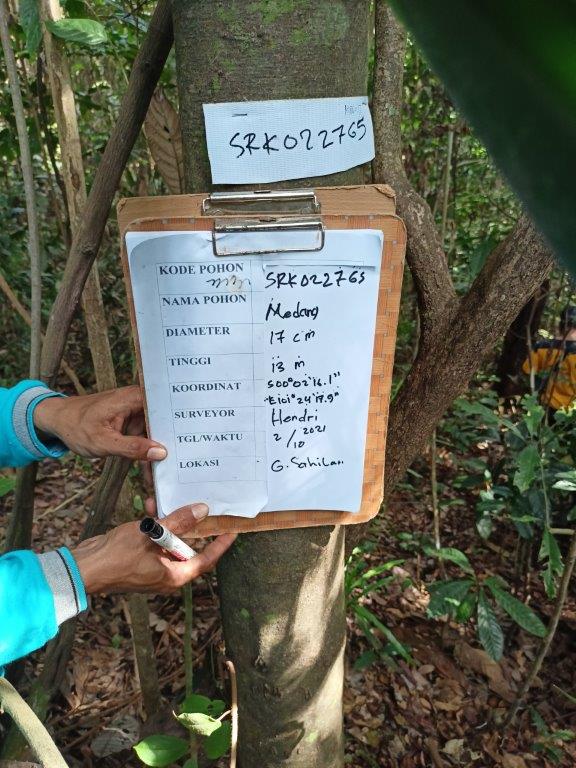 SRK022765
KODE POHON SRK022765
NAMA POHON Medang
DIAMETER 17 cm
TINGGI 13 m
KOORDINAT S00°02'16.1"
E101°24'17.9"
SURVEYOR Hendri
TGL/WAKTU 2/10 2021
LOKASI G. Sahilan